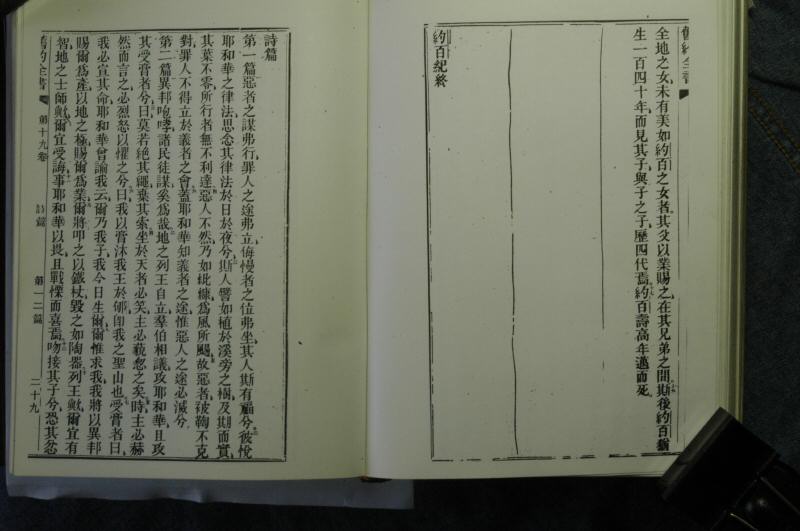 舊約全書
全地之女未有美如約百之女者其父以業賜之在其兄弟之間斯後約百猶
生一百四十年而見其子與子之子歷四代焉約百壽高年邁而死
約百紀終
詩篇
第一篇惡者之謀弗行罪人之途弗立侮慢者之位弗坐其人斯有福兮彼悅
耶和華之律法思念其律法於日於夜兮斯人譬如植於溪旁之樹及期而實
其葉不零所行者無不利達惡人不然乃如粃糠爲風所颺故惡者被鞫不克
對罪人不得立於義者之會蓋耶和華知義者之途惟惡人之途必滅兮
第二篇異邦咆哮諸民徒謀奚爲哉地之列王自立羣伯相議攻耶和華且攻
其受膏者兮曰莫若絕其繩棄其索坐於天者必笑主必藐忽之矣時主必赫
然而言之必烈怒以懼之兮曰我以膏沐我王於郇卽我之聖山也受膏者曰
我必宣其命耶和華曾諭我云爾乃我子我今日生爾爾惟求我我將以異邦
賜爾爲產以地之極賜爾爲業爾將叩之以鐵杖毀之如陶器列王歟爾宜有
智地之士師歟爾宜受誨事耶和華以畏且戰慄而喜焉吻接其子兮恐其忿
舊約全書 第十九卷 詩篇 第一二篇 二十九